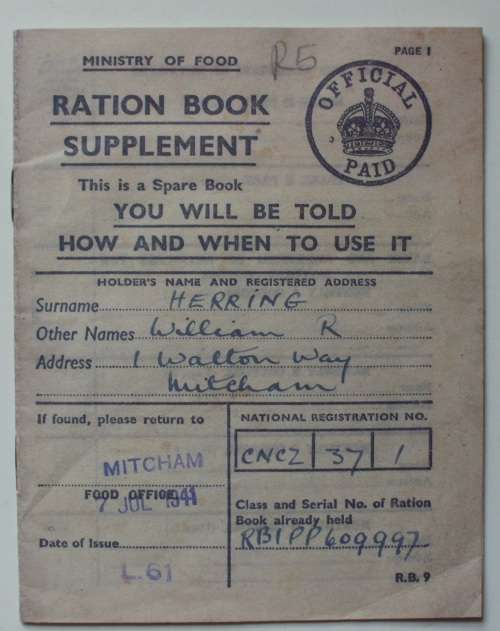 PAGE 1
MINISTRY OF FOOD
R5
OFFICIAL
PAID
RATION BOOK
SUPPLEMENT
This is a Spare Book
YOU WILL BE TOLD
HOW AND WHEN TO USE IT
HOLDER'S NAME AND REGISTERED ADDRESS
Surname HERRING
Other Names William R
Address 1 Walton Way
Mitcham
If found, please return to
MITCHAM
FOOD OFFICE
7 JUL 1941
Date of Issue
L.61
NATIONAL REGISTRATION NO.
CNCZ 37 1
Class and Serial No. of Ration
Book already held
RB1PP609997
R.B. 9